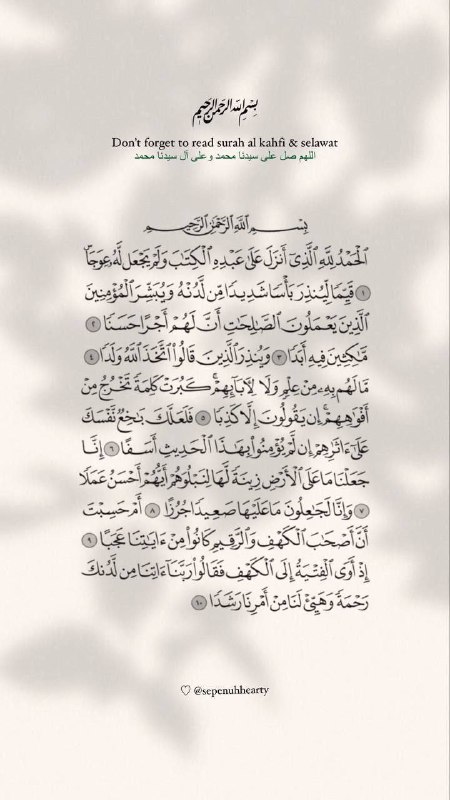 بِسْمِ اللَّهِ الرَّحْمَنِ الرَّحِيمِ
Don't forget to read surah al kahfi & selawat
اللهم صل على سيدنا محمد و على آل سيدنا محمد
بِسْمِ ٱللَّهِ ٱلرَّحْمَٰنِ ٱلرَّحِيمِ
ٱلْحَمْدُ لِلَّهِ ٱلَّذِىٓ أَنزَلَ عَلَىٰ عَبْدِهِ ٱلْكِتَٰبَ وَلَمْ يَجْعَل لَّهُۥ عِوَجَاۜ
١ قَيِّمًا لِّيُنذِرَ بَأْسًا شَدِيدًا مِّن لَّدُنْهُ وَيُبَشِّرَ ٱلْمُؤْمِنِينَ
ٱلَّذِينَ يَعْمَلُونَ ٱلصَّٰلِحَٰتِ أَنَّ لَهُمْ أَجْرًا حَسَنًا ٢
مَّٰكِثِينَ فِيهِ أَبَدًا ٣ وَيُنذِرَ ٱلَّذِينَ قَالُوا۟ ٱتَّخَذَ ٱللَّهُ وَلَدًا ٤
مَّا لَهُم بِهِۦ مِنْ عِلْمٍ وَلَا لِـَٔابَآئِهِمْ ۚ كَبُرَتْ كَلِمَةً تَخْرُجُ مِنْ
أَفْوَٰهِهِمْ ۚ إِن يَقُولُونَ إِلَّا كَذِبًا ٥ فَلَعَلَّكَ بَٰخِعٌ نَّفْسَكَ
عَلَىٰٓ ءَاثَٰرِهِمْ إِن لَّمْ يُؤْمِنُوا۟ بِهَٰذَا ٱلْحَدِيثِ أَسَفًا ٦ إِنَّا
جَعَلْنَا مَا عَلَى ٱلْأَرْضِ زِينَةً لَّهَا لِنَبْلُوَهُمْ أَيُّهُمْ أَحْسَنُ عَمَلًا
٧ وَإِنَّا لَجَٰعِلُونَ مَا عَلَيْهَا صَعِيدًا جُرُزًا ٨ أَمْ حَسِبْتَ
أَنَّ أَصْحَٰبَ ٱلْكَهْفِ وَٱلرَّقِيمِ كَانُوا۟ مِنْ ءَايَٰتِنَا عَجَبًا ٩
إِذْ أَوَى ٱلْفِتْيَةُ إِلَى ٱلْكَهْفِ فَقَالُوا۟ رَبَّنَآ ءَاتِنَا مِن لَّدُنكَ
رَحْمَةً وَهَيِّئْ لَنَا مِنْ أَمْرِنَا رَشَدًا ١٠
♡ @sepenuhhearty